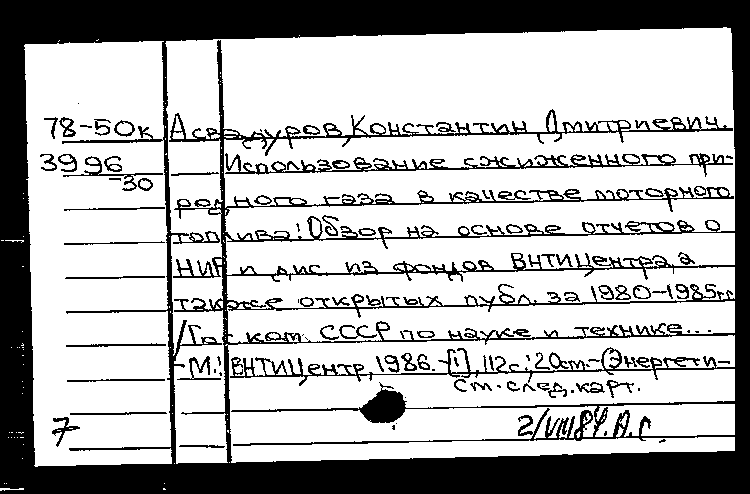 78-50к Асвадуров, Константин Дмитриевич.
3996 Использование сжиженного при-
-30
родного газа в качестве моторного
топлива: Обзор на основе отчетов о
НИР и дис. из фондов ВНТИЦентра, а
также открытых публ. за 1980-1985гг
/Гос. ком. СССР по науке и технике...
-М.: ВНТИЦентр, 1986.-[1], 112с.; 20см.-(Энергети-
См. след. карт.
7 2/VIII 84. А.С.